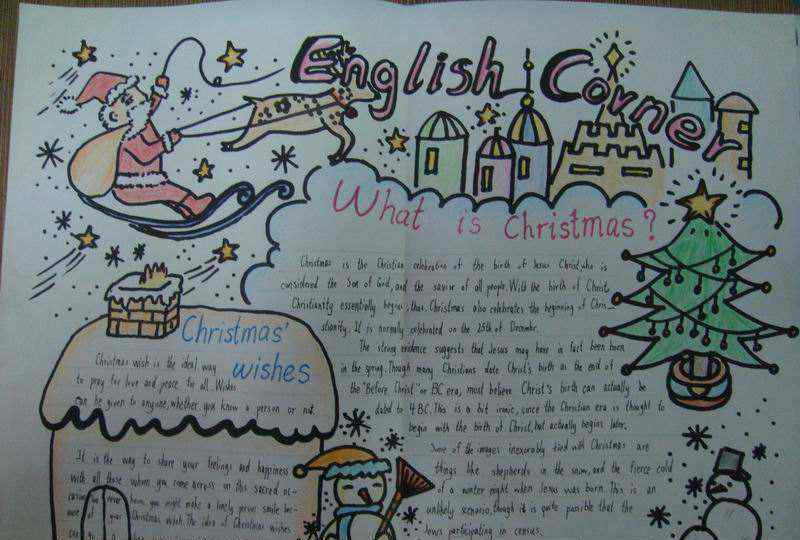 English Corner
What is Christmas?
Christmas is the Christian celebration of the birth of Jesus Christ, who is
considered the Son of God, and the savior of all people. With the birth of Christ
Christianity essentially begins, thus, Christmas also celebrates the beginning of Chris-
stianity. It is normally celebrated on the 25th of December.
The strong evidence suggests that Jesus may have in fact been born
in the spring. Though many Christians date Christ's birth as the end of
the "Before Christ" or BC era, most believe Christ's birth can actually be
dated to 4 B.C. This is a bit ironic, since the Christian era is thought to
begin with the birth of Christ, but actually begins later.
Some of the images inexorably tied with Christmas are
things like shepherds in the snow, and the fierce cold
of a winter night when Jesus was born. This is an
unlikely scenario, though it is quite possible that the
Jews participating in census
Christmas' wishes
Christmas wish is the ideal way
to pray for love and peace for all. Wishes
can be given to anyone, whether you know a person or not.
It is the way to share your feelings and happiness
with all those whom you come across on this sacred oc-
you might make a lonely person smile bec-
of your Christmas wish. The idea of Christmas wishes